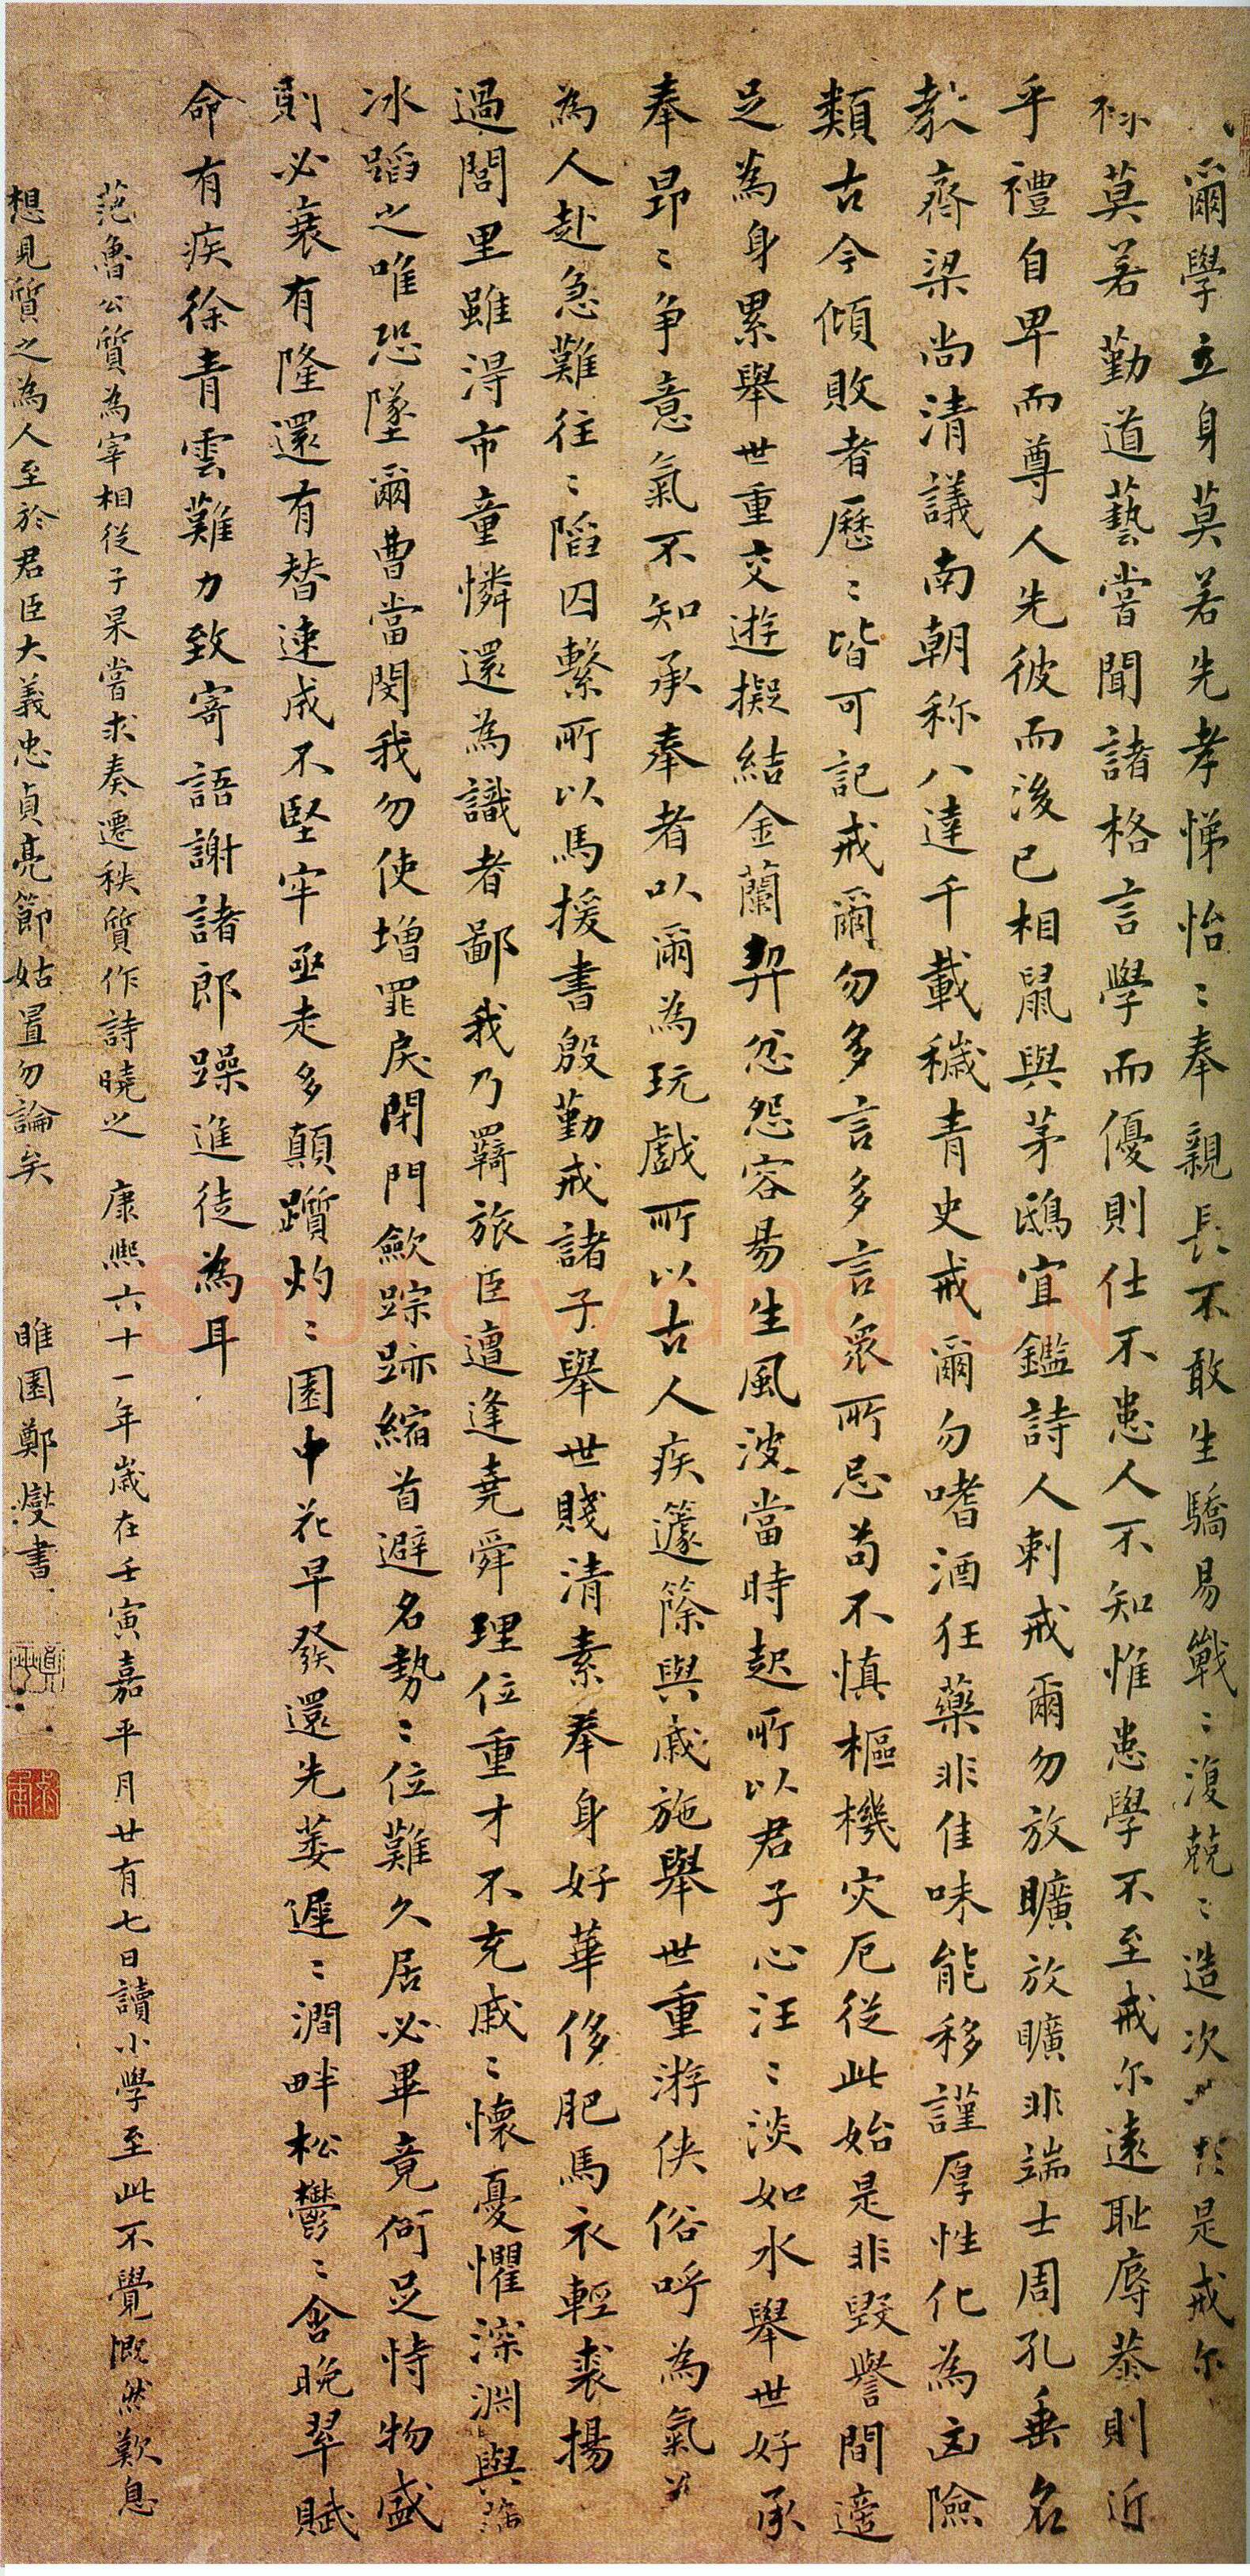 爾學立身莫若先孝悌怡〻奉親長不敢生驕易戰〻復兢〻造次是戒尔
莫若勤道藝嘗聞諸格言學而優則仕不患人不知惟患學不至戒尔遠恥辱恭則近
乎禮自卑而尊人先彼而後已相鼠與茅鴟宜鑑詩人刺戒爾勿放曠放曠非端士周孔垂名
教齊梁尚清議南朝称八達千載穢青史戒爾勿嗜酒狂藥非佳味能移謹厚性化為凶險
類古今傾敗者歷〻皆可記戒爾勿多言多言衆所忌苟不慎樞機灾厄從此始是非毀譽間適
足為身累舉世重交遊擬結金蘭契忿怨容易生風波當時起所以君子心汪〻淡如水舉世好承
奉昂〻争意氣不知承奉者以爾為玩戲所以古人疾籧篨與戚施舉世重游俠俗呼為氣
為人赴急難往〻陷囚繫所以馬援書殷勤戒諸子舉世賤清素奉身好華侈肥馬衣輕裘揚
過閭里雖得市童憐還為識者鄙我乃羇旅臣遭逢堯舜理位重才不充戚〻懷憂懼深渊與
冰蹈之唯恐墜爾曹當閔我勿使增罪戾閉門歛踪跡縮首避名勢〻位難久居必畢竟何足恃物盛
則必衰有隆還有替速成不堅牢亟走多顛躓灼〻園中花早發還先萎遲〻澗畔松鬱〻含晚翠賦
命有疾徐青雲難力致寄語謝諸郎躁進徒為耳
范魯公質為宰相從子杲嘗求奏遷秩質作詩曉之 康熙六十一年歲在壬寅嘉平月廿有七日讀小學至此不覺慨然歎息
想見質之為人至於君臣大義忠貞亮節姑置勿論矣 睢園鄭燮書